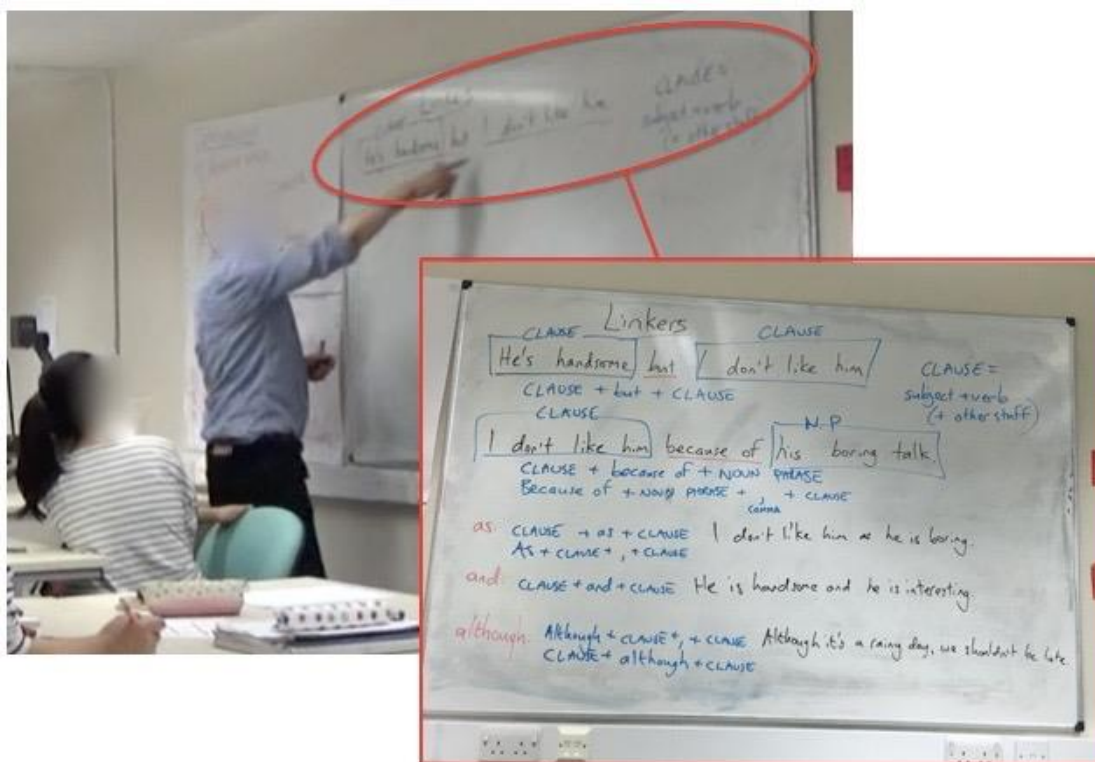 LINKERS
He's handsome but I don't like him
CLAUSE =
subject + verb
(+ other stuff)
Linkers
CLAUSE CLAUSE
He's handsome but I don't like him
CLAUSE =
CLAUSE + but + CLAUSE
subject + verb
(+ other stuff)
CLAUSE N.P
I don't like him because of his boring talk.
CLAUSE + because of + NOUN PHRASE
Because of + NOUN PHRASE + , + CLAUSE
COMMA
as: CLAUSE + as + CLAUSE I don't like him as he is boring.
As + CLAUSE + , + CLAUSE
and: CLAUSE + and + CLAUSE He is handsome and he is interesting.
although: Although + CLAUSE + , + CLAUSE Although it's a rainy day, we shouldn't be late.
CLAUSE + although + CLAUSE